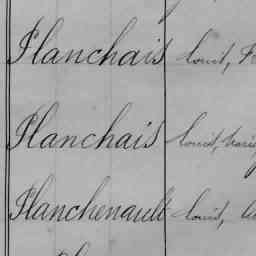 Planchais Louis, F
Planchais Louis, Marie
Planchenault Louis,